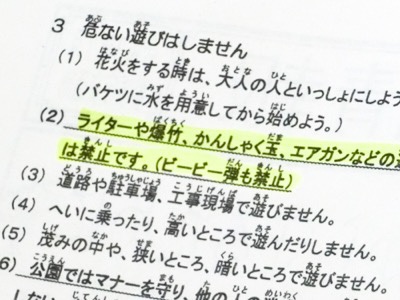 3 危ない遊びはしません
(1) 花火をする時は、大人の人といっしょにしよう
(バケツに水を用意してから始めよう。)
(2) ライターや爆竹、かんしゃく玉、エアガンなどの
は禁止です。(ビービー弾も禁止)
(3) 道路や駐車場、工事現場で遊びません。
(4) へいに乗ったり、高いところで遊んだりしません。
(5) 茂みの中や、狭いところ、暗いところで遊びません。
6) 公園ではマナーを守り、他の
しない